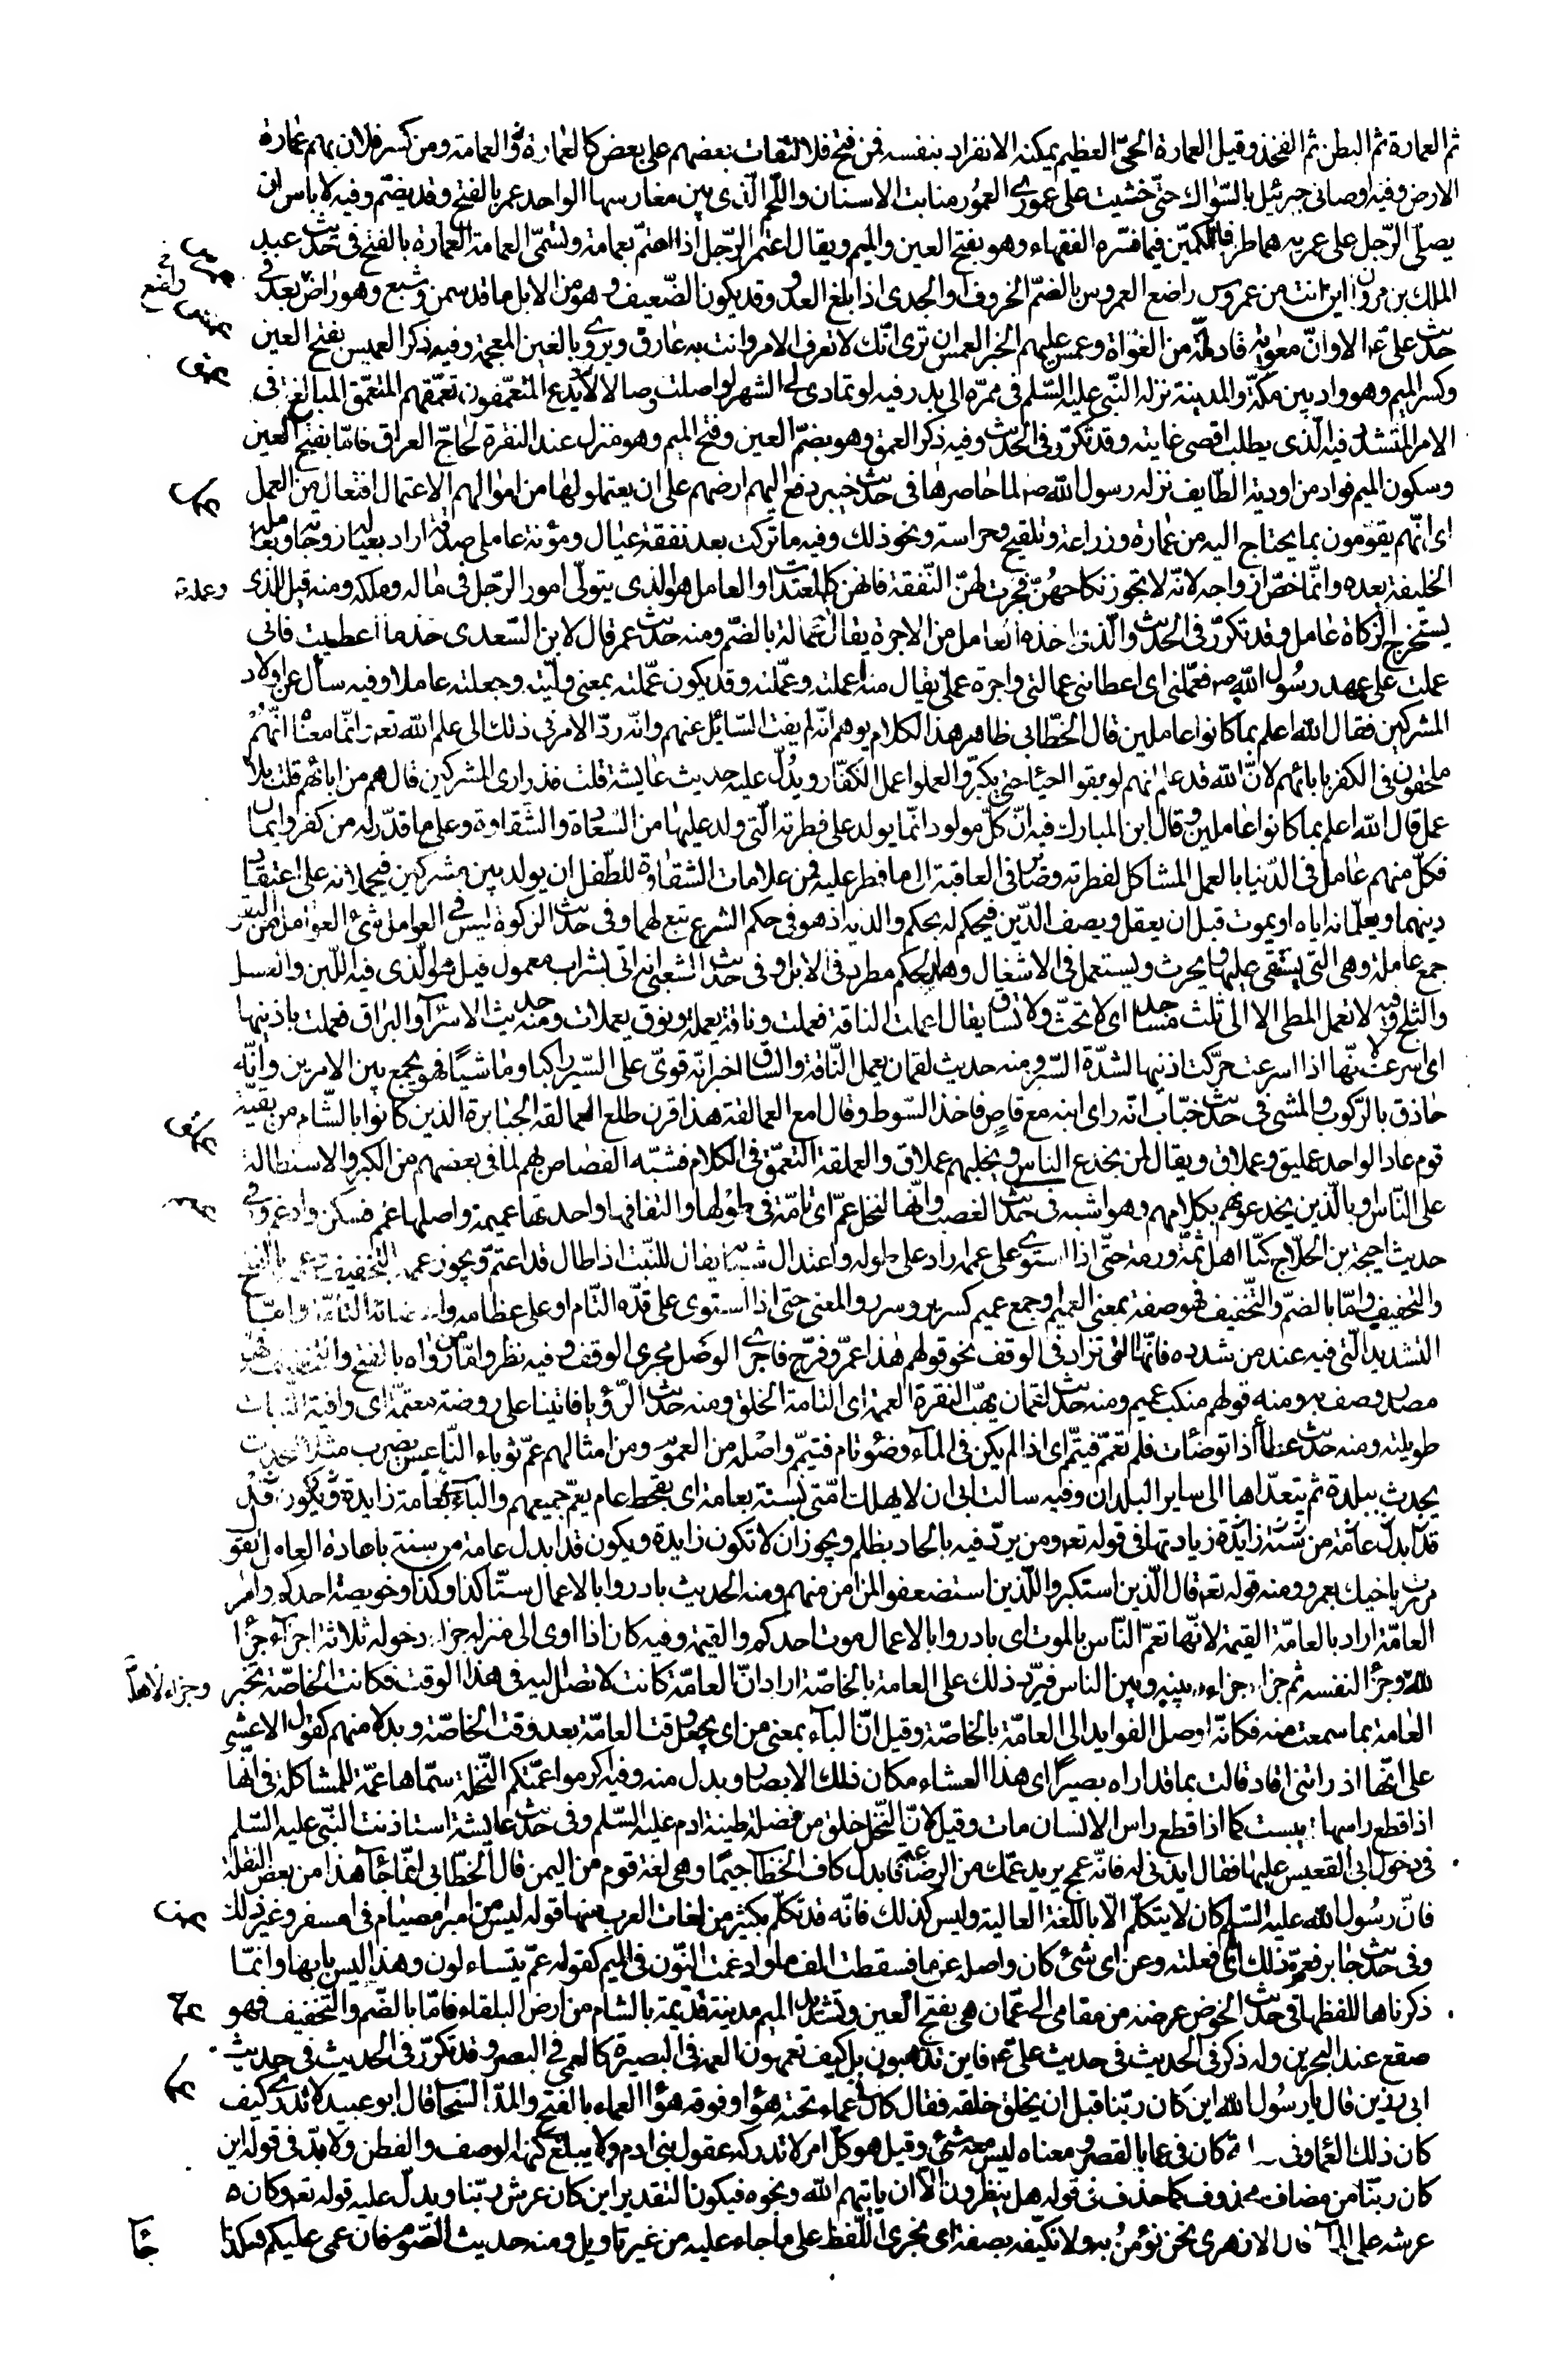 ثم العمارة ثم البطن ثم الفخذ وقيل العمارة الحيّ العظيم يمكنه الانفراد بنفسه فمن فتح فلالتفات بعضهم على بعض كالعمارة والعمامة ومن كسر فلان بهم عمارة
الارض وفيه اوصانى جبرئيل بالسّواك حتّى خشيت على عمورى العمور منابت الاسنان واللّحم الّذى بين مغارسها الواحد عمر بالفتح وقد يضمّ وفيه لا باس ان
يصلّى الرّجل على عمريه هما طرفا الكمّين فيما فسّره الفقهاء وهو بفتح العين والميم ويقال اعتمر الرّجل اذا اعتمّ بعمامة وتسمّى العمامة العمارة بالفتح فى حديث عبد
الملك بن مروان اين انت من عمروس راضع العمروس بالضمّ الخروف او الجدى اذا بلغ العدو وقد يكون الضّعيف وهو من الابل ما قد سمن وشبع وهو راضع بعد فى
حديث علىّ الا وانّ معوية قاد لمّة من الغواة وعمس عليهم الخبر العمس ان ترى انّك لا تعرف الامر وانت به عارف ويروى بالغين المعجمة وفيه ذكر العميس بفتح العين
وكسر الميم وهو واد بين مكّة والمدينة نزله النّبى عليه السّلم فى ممرّه الى بدر وفيه لو تمادى لى الشهر لواصلت وصالا يدع المتعمّقون تعمّقهم المتعمّق المبالغ فى
الامر المتشدد فيه الّذى يطلب اقصى غايته وقد تكرّر فى الحديث وفيه ذكر العمق وهو بضمّ العين وفتح الميم وهو منزل عند النقرة لحاجّ العراق فامّا بفتح العين
وسكون الميم فواد من اودية الطّايف نزله رسول الله لما حاصرها فى حديث خيبر دفع اليهم ارضهم على ان يعتملوها من اموالهم الاعتمال افتعال من العمل
اى انّهم يقومون بما يحتاج اليه من عمارة وزراعة وتلقيح وحراسة ونحو ذلك وفيه ما تركت بعد نفقة عيالى ومؤنة عاملى صدقة اراد بعياله زوجاته وبعامله
الخليفة بعده وانّما خصّ ازواجه لانّه لا يجوز نكاحهنّ فجرت لهنّ النّفقة فانهن كالمعتدات والعامل هو الذى يتولّى امور الرّجل فى ماله وملكه وعمله ومنه قيل للذى
يستخرج الزكاة عامل وقد تكرّر فى الحديث والّذى اخذه العامل من الاجرة يقال عمالة بالضّم ومنه حديث عمر قال لابن السّعدى خذ ما اعطيت فانى
عملت على عهد رسول الله فعمّلنى اى اعطانى عمالتى واجرة عملى يقال منه اعملته وعمّلته وقد يكون عمّلته بمعنى ولّيته وجعلته عاملا وفيه سأل عن اولاد
المشركين فقال الله اعلم بما كانوا عاملين قال الخطّابى ظاهر هذا الكلام يوهم انّه لم يفت السّائل عنهم وانّه ردّ الامر فى ذلك الى علم الله تعه وانّما معناه انّهم
ملحقون فى الكفر بابائهم لانّ الله قد علم انهم لو بقوا احياء حتى يكبروا لعملوا عمل الكفّار ويدلّ عليه حديث عايشة قلت فذرارى المشركين قال هم من ابائهم قلت بلا
عمل قال الله اعلم بما كانوا عاملين وقال ابن المبارك فيه انّ كلّ مولود انّما يولد على فطرته الّتى ولد عليها من السّعادة والشّقاوة وعلى ما قدّر له من كفر وايمان
فكلّ منهم عامل فى الدّنيا بالعمل المشاكل لفطرته وصائر فى العاقبة الى ما فطر عليه فمن علامات الشقاوة للطّفل ان يولد بين مشركين فيحملانه على اعتقاد
دينهما ويعلّمانه اياه او يموت قبل ان يعقل ويصف الدّين فيحكم له بحكم والديه اذ هو فى حكم الشرع تبع لهما وفى حديث الزكوة ليس فى العوامل شىء العوامل من البقر
جمع عاملة وهى التى يستقى عليها ويحرث ويستعمل فى الاشغال وهذا الحكم مطرد فى الابل وفى حديث الشعبى انه اتى بشراب معمول قيل هو الّذى فيه اللّبن والعسل
والثلج وفيه لا تعمل المطى الا الى ثلث مساجد اى لا تحثّ ولا تساق يقال اعملت الناقة فعملت وناقة يعملة ونوق يعملات ومنه حديث الاسراء والبراق فعملت باذنيها
اى اسرعت لانّها اذا اسرعت حرّكت اذنيها لشدّة السّير ومنه حديث لقمان يعمل النّاقة والسّاق اخبر انّه قوىّ على السّير راكبا وماشيًا فهو يجمع بين الامرين وانّه
حاذق بالرّكوب والمشى فى حديث خبّاب انّه راى ابنه مع قاصٍ فاخذ السّوط وقال امع العمالقة هذا قرن طلع العمالقة الجبابرة الذين كانوا بالشّام من بقيّة
قوم عاد الواحد عمليق وعملاق ويقال لمن يخدع الناس ويخلبهم عملاق والعملقة التعمّق فى الكلام فشبّه القصّاص بهم لما فى بعضهم من الكبر والاستطالة
على النّاس او بالّذين يخدعونهم بكلامهم وهو اشبه فى حديث الغصب وانّها لنخل عمّ اى تامّة فى طولها والتفافها واحدتها عميمة واصلها عمم فسكن وادغم وفى
حديث احيحة بن الجلاح كنّا اهل ثمّه ورمّه حتّى اذا استوى على عممه اراد على طوله واعتدال شبابه يقال للنّبت اذا طال قد اعتمّ ويجوز عممه بالتخفيف وعممه بالفتح
والتخفيف فامّا بالضمّ والتّخفيف فهو صفة بمعنى العميم او جمع عميم كسرير وسرر والمعنى حتى اذا استوى على قدّه التّام او على عظامه واعضائه التامّة وامّا
التشديد الّتى فيه عند من شدده فانّها الّتى تزاد فى الوقف نحو قولهم هذا عمرّ وفرجّ فاجرى الوصل مجرى الوقف وفيه نظر وامّا من رواه بالفتح والتخفيف فهو
مصدر وصف به ومنه قولهم منكب عميم ومنه حديث لقمان يهب البقرة العممة اى التامة الخلق ومنه حديث الرّؤيا فاتينا على روضة معتمّة اى وافية النبات
طويلته ومنه حديث عطاء اذا توضأت فلم تعمم فتيمّم اى اذا لم يكن فى الماء وضوء تام فتيمّم واصله من العموم ومن امثالهم عمّ ثوباء النّاعس يضرب مثلا للحدث
يحدث ببلدة ثم يتعدّاها الى ساير البلدان وفيه سالت ربى ان لا يهلك امّتى بسنة بعامة اى بقحط عام يعمّ جميعهم والباء بعامة زايدة ويكون
قد ابدل عامّة من سنة زايدة زيادتها فى قوله تعه ومن يرد فيه بالحاد بظلم ويجوز ان لا تكون زايدة ويكون قد ابدل عامة من سنة باعادة العامل تقول
مررت باخيك بعمرو ومنه قوله تعه قال الّذين استكبروا للّذين استضعفوا لمن امن منهم ومنه الحديث بادروا بالاعمال ستّا كذا وكذا وخويصة احدكم وامر
العامّة اراد بالعامّة القيمة لانّها تعمّ النّاس بالموت اى بادروا بالاعمال موت احدكم والقيمة وفيه كان اذا اوى الى منزله جزأ دخوله ثلاثة اجزاء جزأ
لله وجزأ لاهله وجزأ لنفسه ثم جزأ جزءه بينه وبين الناس فيردّ ذلك على العامة بالخاصّة اراد انّ العامّة كانت لا تصل اليه فى هذا الوقت فكانت الخاصّة تخبر
العامة بما سمعت منه فكانّه اوصل الفوايد الى العامّة بالخاصّة وقيل انّ الباء بمعنى من اى يجعل وقت العامّة بعد وقت الخاصّة وبدلا منهم كقول الاعشى
على انّها اذ راتنى اقاد قالت بما قد اراه بصيرًا اى هذا العشاء مكان ذلك الابصار وبدل منه وفيه اكرموا عمّتكم النّخلة سمّاها عمّة للمشاكلة فى انّها
اذا قطع راسها يبست كما اذا قطع راس الانسان مات وقيل لانّ النّخل خلق من فضلة طينة ادم عليه السّلم وفى حديث عايشة استاذنت النّبى عليه السّلم
فى دخول ابى القعيس عليها فقال ايذنى له فانّه عمج يريد عمّك من الرضاعة فابدل كاف الخطاب جيمًا وهى لغة قوم من اليمن قال الخطّابى انّما جاء هذا من بعض النقلة
فانّ رسول الله عليه السّلم كان لا يتكلّم الّا باللّغة العالية وليس كذلك فانّه قد تكلّم بكثير من لغات العرب منها قوله ليس من امبر امصيام فى امسفر وغير ذلك
وفى حديث جابر فعمّ ذلك اى لم فعلته وعن اى شىء كان واصله عن ما فسقطت الف ما وادغمت النّون فى الميم كقوله عمّ يتساءلون وهذا ليس بابها وانّما
ذكرناها للفظها فى حديث الحوض عرضه من مقامى الى عمّان هى بفتح العين وتشديد الميم مدينة قديمة بالشام من ارض البلقاء فامّا بالضّم والتّخفيف فهو
صقع عند البحرين وله ذكر فى الحديث فى حديث علىّ فاين تذهبون بل كيف تعمهون العمه فى البصيرة كالعمى فى البصر وقد تكرّر فى الحديث فى حديث
ابى رزين قال يا رسول الله اين كان ربّنا قبل ان يخلق خلقه فقال كان فى عماء تحته هواء وفوقه هواء العماء بالفتح والمدّ السّحاب قال ابو عبيد لا ندرى كيف
كان ذلك العماء وفى كان فى عما بالقصر ومعناه ليس معه شىء وقيل هو كلّ امر لا تدركه عقول بنى ادم ولا يبلغ كنهه الوصف والفطن ولا بدّ فى قوله اين
كان ربّنا من مضاف محذوف كما حذف فى قوله هل ينظرون الّا ان ياتيهم الله ونحوه فيكون التقدير اين كان عرش ربّنا ويدلّ عليه قوله تعه وكان
عرشه على الماء قال الازهرى نحن نؤمن به ولا نكيّفه بصفة اى نجرى اللّفظ على ما جاء عليه من غير تاويل ومنه حديث الصّوم فان عمى عليكم هكذا
جا